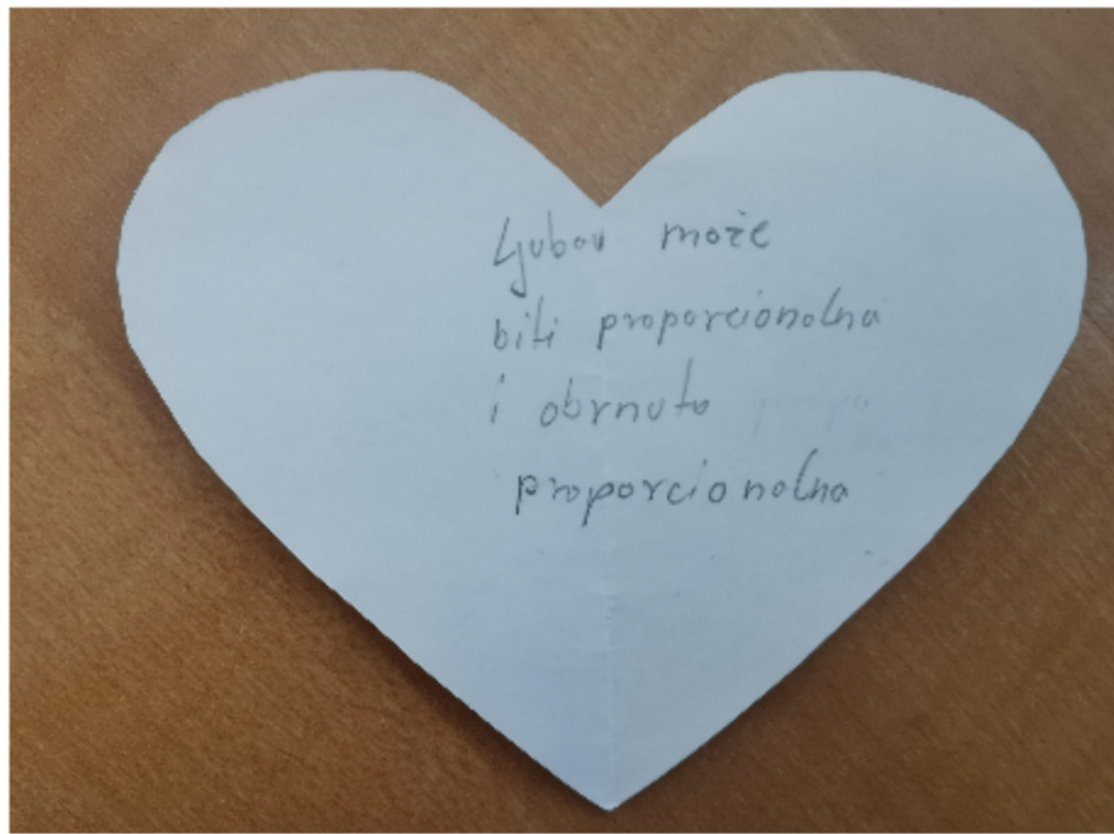 Ljubav može
biti proporcionalna
i obrnuto
proporcionalna